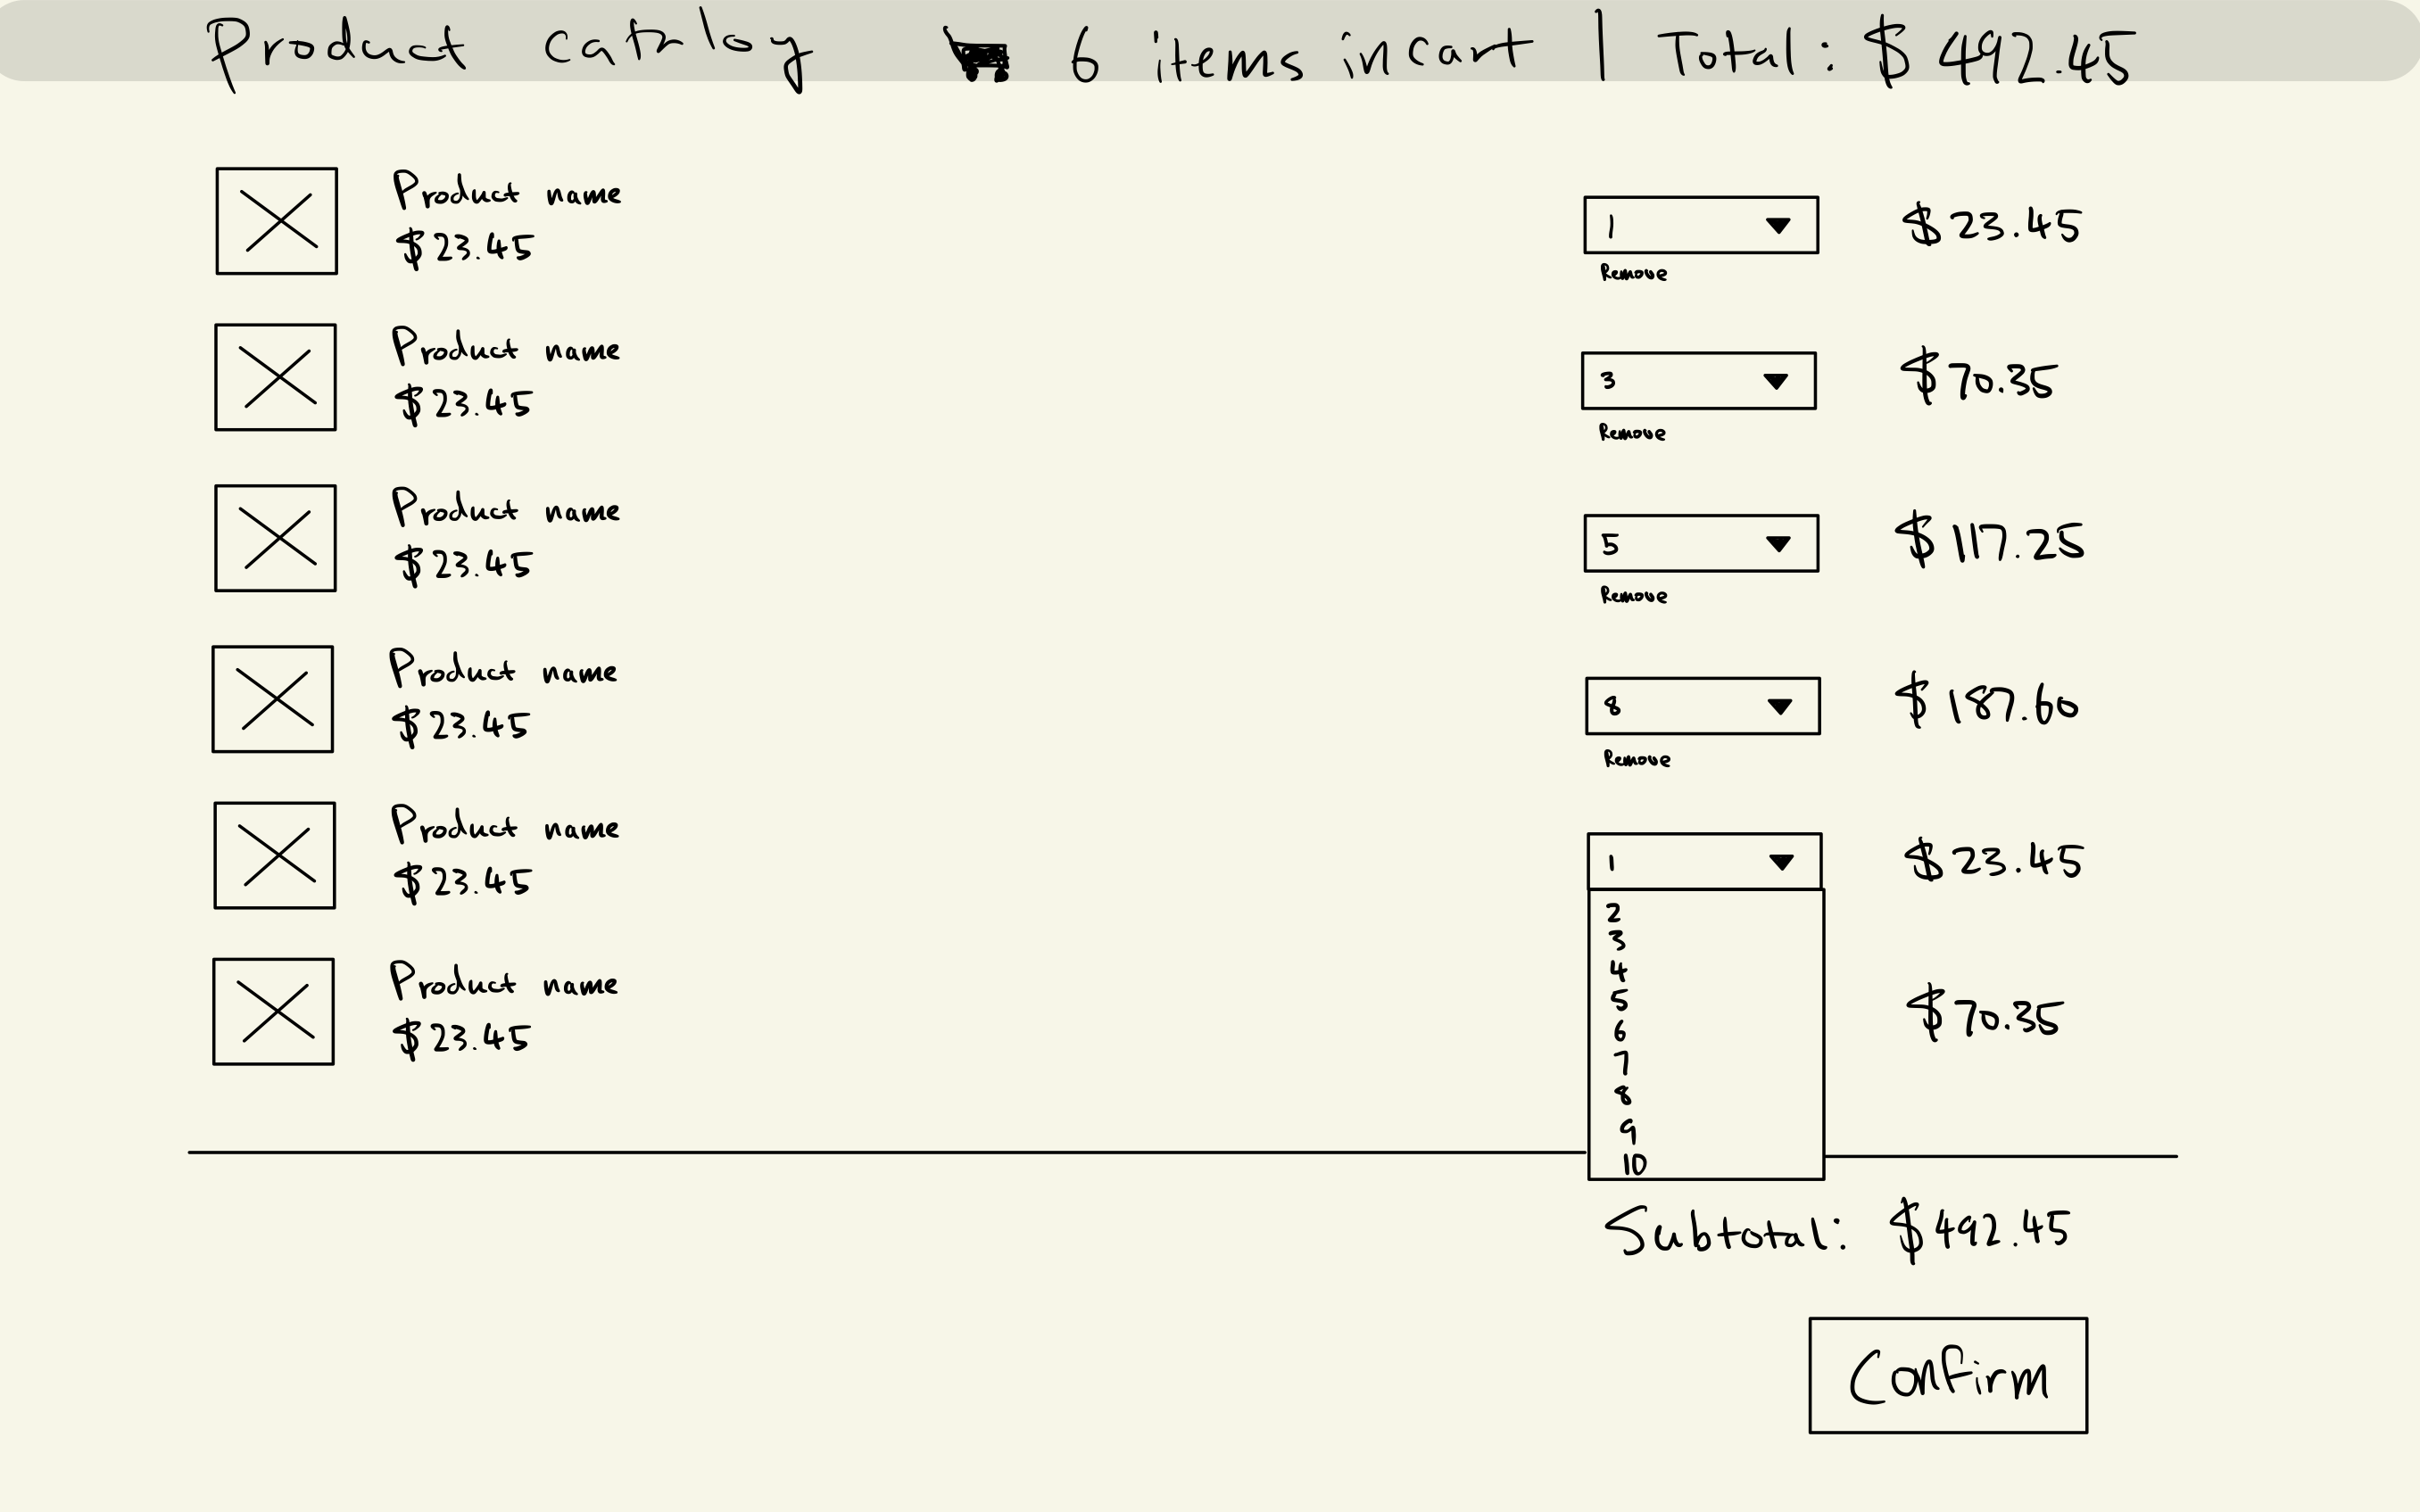 Product catalog 6 items in cart | Total: $492.45
Product name
$23.45
1
Remove
$23.45
Product name
$23.45
3
Remove
$70.35
Product name
$23.45
5
Remove
$117.25
Product name
$23.45
8
Remove
$187.60
Product name
$23.45
1
$23.45
2
3
4
5
6
7
8
9
10
Product name
$23.45
$70.35
Subtotal: $492.45
Confirm